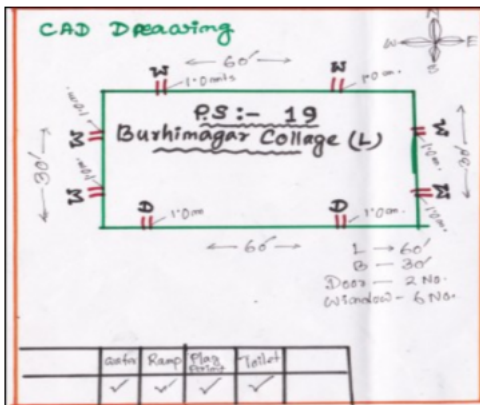 CAD Dreawing
N
W E
S
60'
W W
1.0 mts 1.0m.
P.S :- 19
Burhimagar Collage (L)
1.0m. W W 1.0m.
30' 30'
W 1.0m. W 1.0m.
D 1.0m D 1.0m.
60'
L → 60'
B — 30'
Door — 2 No.
Window - 6 No.
Ramp Play Toilet
✓ ✓ ✓ ✓